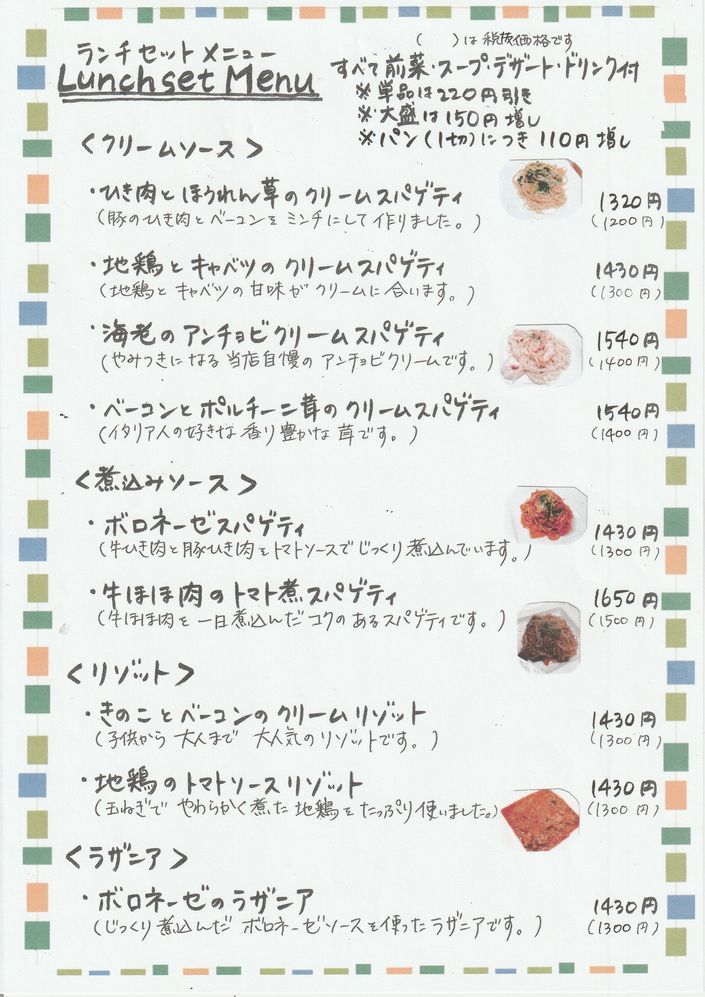 ( )は税抜価格です
ランチセットメニュー
Lunchset Menu
すべて前菜・スープ・デザート・ドリンク付
※単品は220円引き
※大盛は150円増し
※パン(1切)につき110円増し
<クリームソース>
・ひき肉とほうれん草のクリームスパゲティ 1320円
(豚のひき肉とベーコンをミンチにして作りました。) (1200円)
・地鶏とキャベツのクリームスパゲティ 1430円
(地鶏とキャベツの甘味がクリームに合います。) (1300円)
・海老のアンチョビクリームスパゲティ 1540円
(やみつきになる当店自慢のアンチョビクリームです。) (1400円)
・ベーコンとポルチーニ茸のクリームスパゲティ 1540円
(イタリア人の好きな香り豊かな茸です。) (1400円)
<煮込みソース>
・ボロネーゼスパゲティ 1430円
(牛ひき肉と豚ひき肉をトマトソースでじっくり煮込んでいます。) (1300円)
・牛ほほ肉のトマト煮スパゲティ 1650円
(牛ほほ肉を一日煮込んだコクのあるスパゲティです。) (1500円)
<リゾット>
・きのことベーコンのクリームリゾット 1430円
(子供から大人まで大人気のリゾットです。) (1300円)
・地鶏のトマトソースリゾット 1430円
(玉ねぎでやわらかく煮た地鶏をたっぷり使いました。) (1300円)
<ラザニア>
・ボロネーゼのラザニア 1430円
(じっくり煮込んだボロネーゼソースを使ったラザニアです。) (1300円)